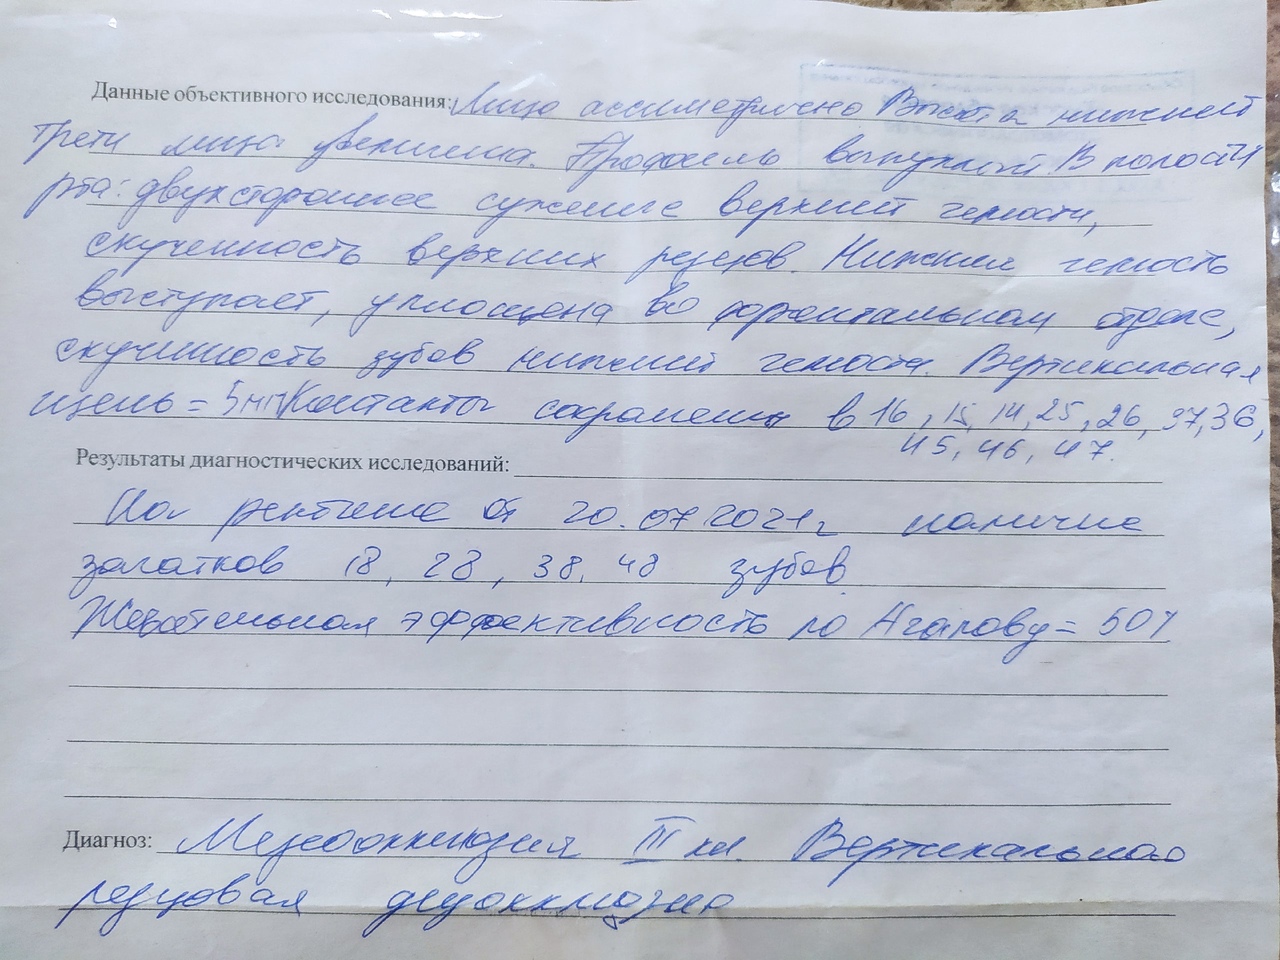 Данные объективного исследования: Лицо ассиметрично Высота нижней
трети лица увеличена. Профиль выпуклый. В полости
рта: двухстороннее сужение верхней челюсти,
скученность верхних резцов. Нижняя челюсть
выступает, уплощена во фронтальном отделе,
скученность зубов нижней челюсти. Вертикальная
щель = 5мм Контакты сохранены в 16, 15, 14, 25, 26, 37, 36,
45, 46, 47.
Результаты диагностических исследований:
На рентгене от 20.07.2021г наличие
зачатков 18, 28, 38, 48 зубов.
Жевательная эффективность по Агапову = 50%
Диагноз: Мезоокклюзия III кл. Вертикальная
резцовая дизокклюзия